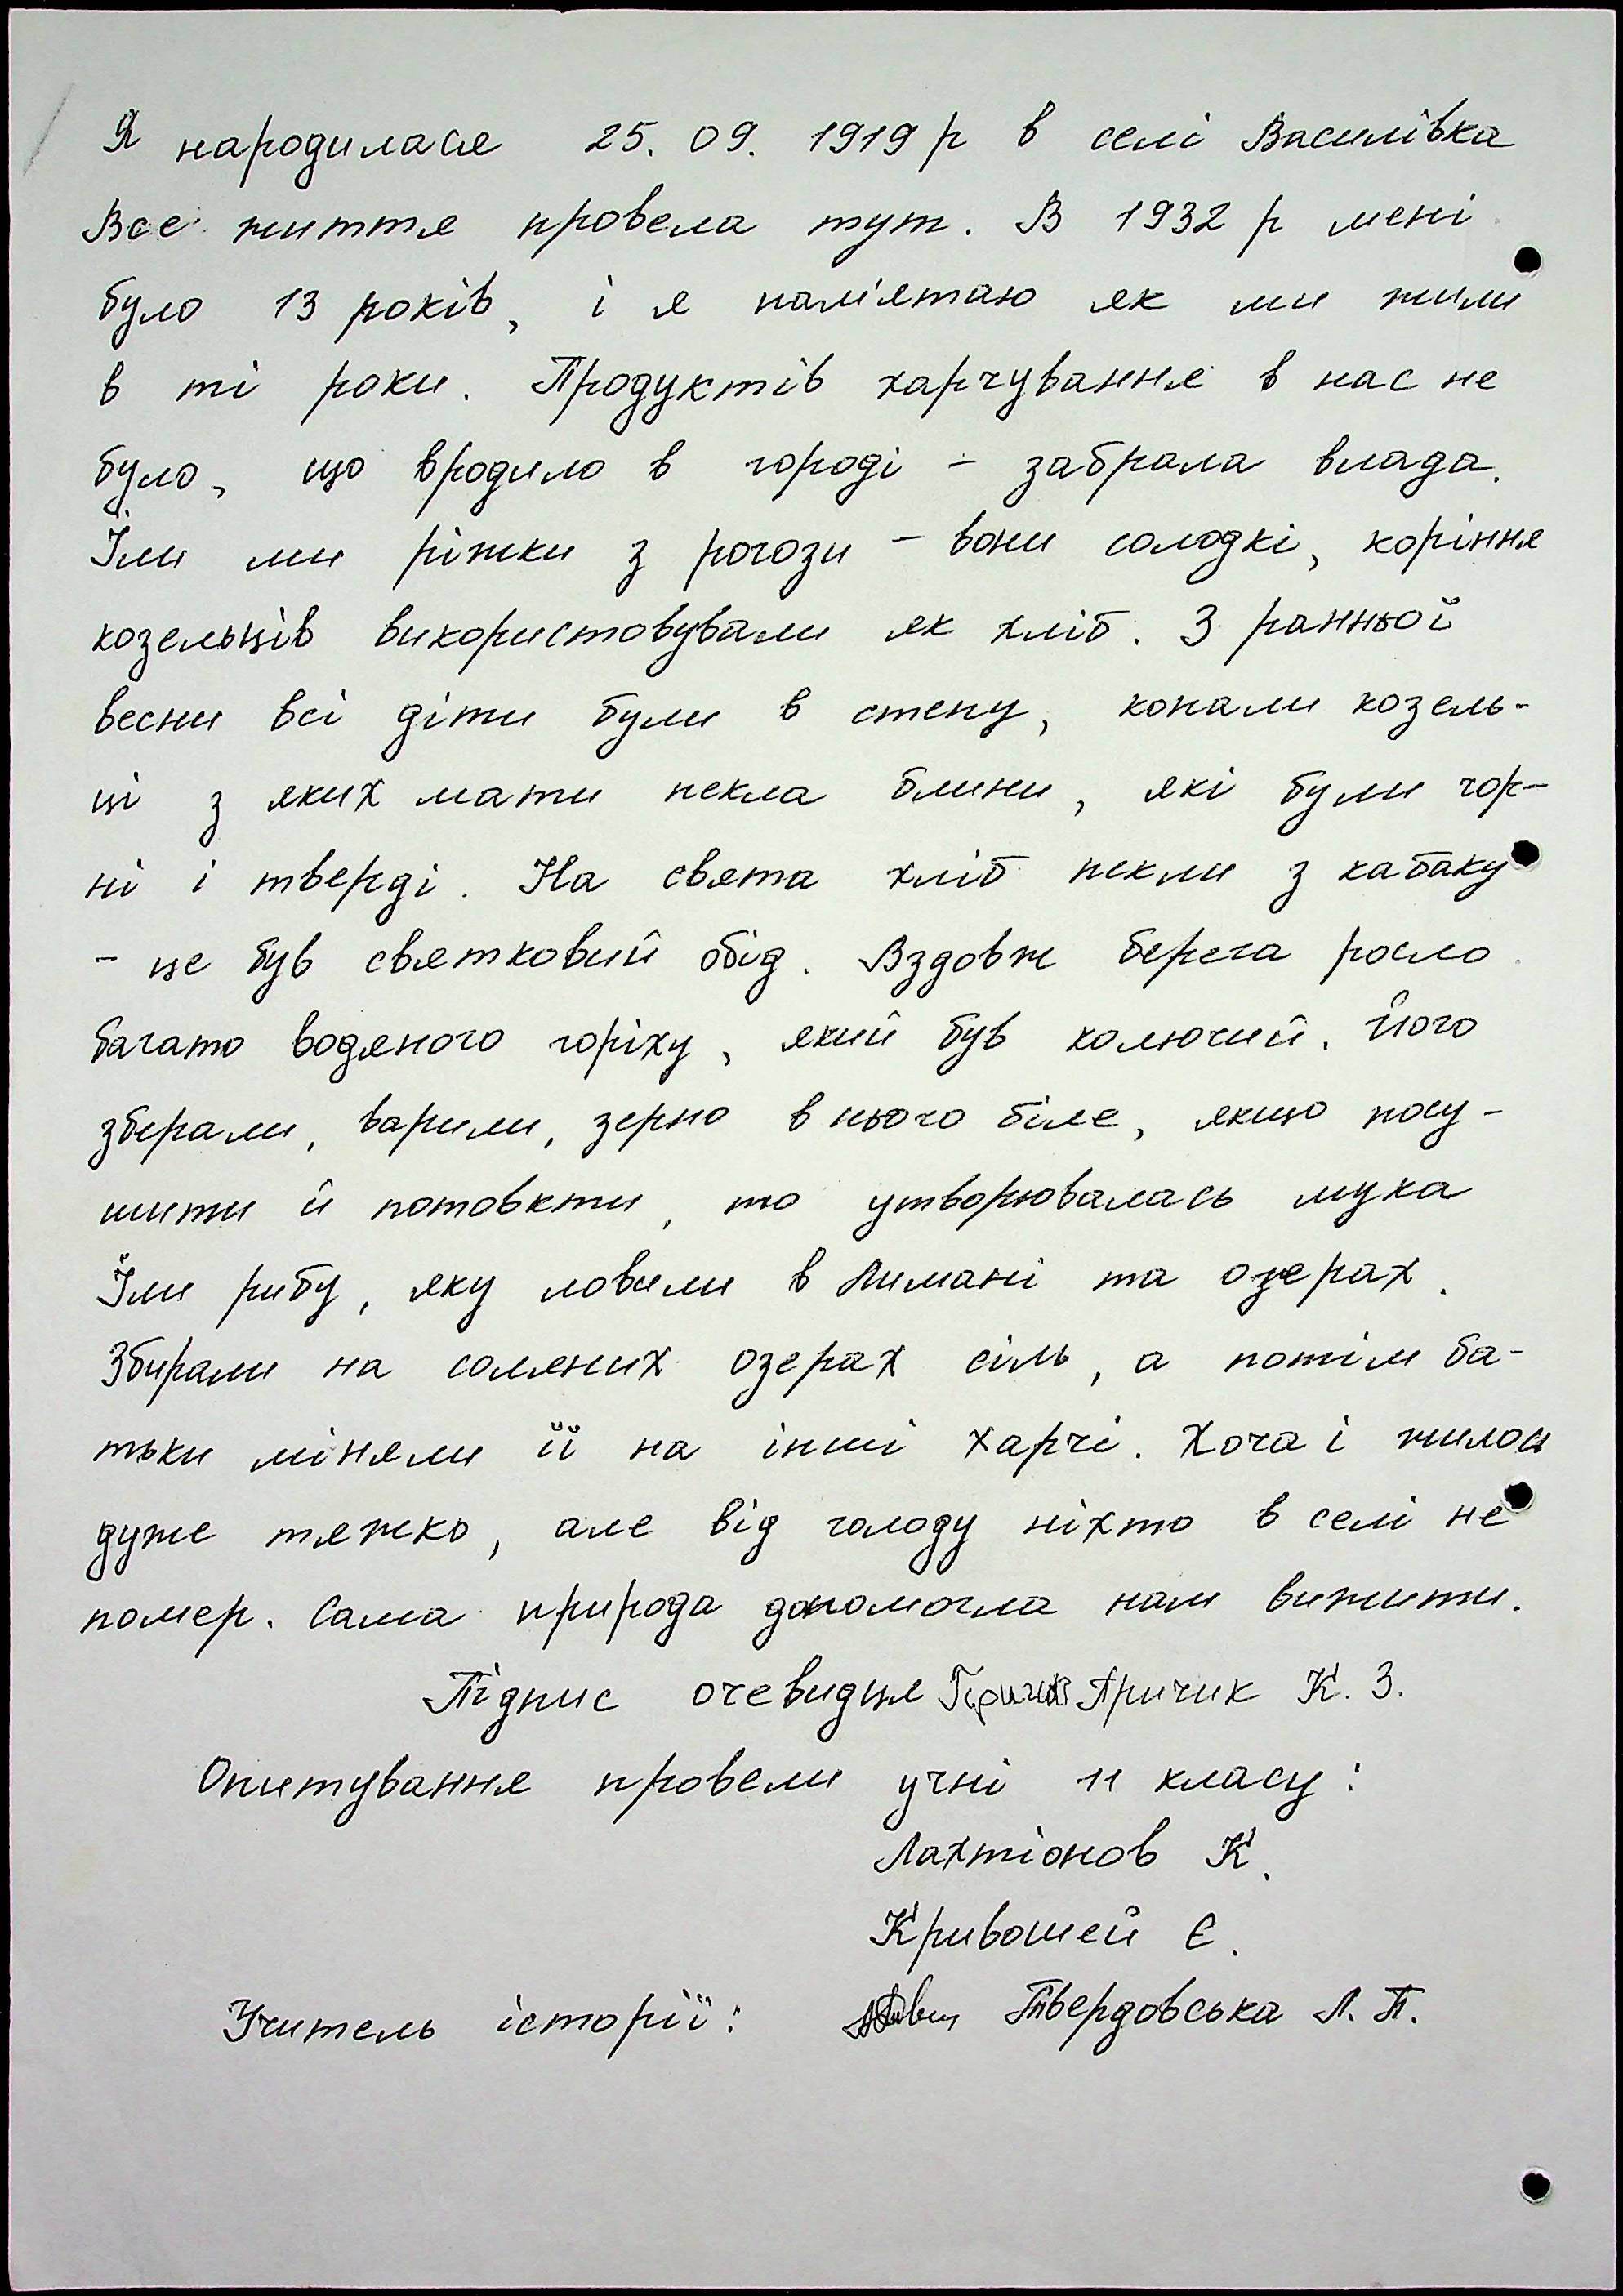 Я народилася 25. 09. 1919 р в селі Василівка
Все життя провела тут. В 1932 р мені
було 13 років, і я пам'ятаю як ми жили
в ті роки. Продуктів харчування в нас не
було, що вродило в городі - забрала влада.
Їли ми ріжки з рогози - вони солодкі, коріння
козельців використовували як хліб. З ранньої
весни всі діти були в степу, копали козель-
ці з яких мати пекла блини, які були чор-
ні і тверді. На свята хліб пекли з кабаку
- це був святковий обід. Вздовж берега росло
багато водяного горіху, який був колючий. Його
збирали, варили, зерно в нього біле, якщо посу-
шити й потовкти, то утворювалась мука
Їли рибу, яку ловили в Лимані та озерах.
Збирали на соляних озерах сіль, а потім ба-
тьки міняли її на інші харчі. Хоча і жилось
дуже тяжко, але від голоду ніхто в селі не
помер. Сама природа допомогла нам вижити.
Підпис очевидця Причик К. З.
Опитування провели учні 11 класу:
Лахтіонов К.
Кривошей Є.
Учитель історії: Твердовська Л. П.